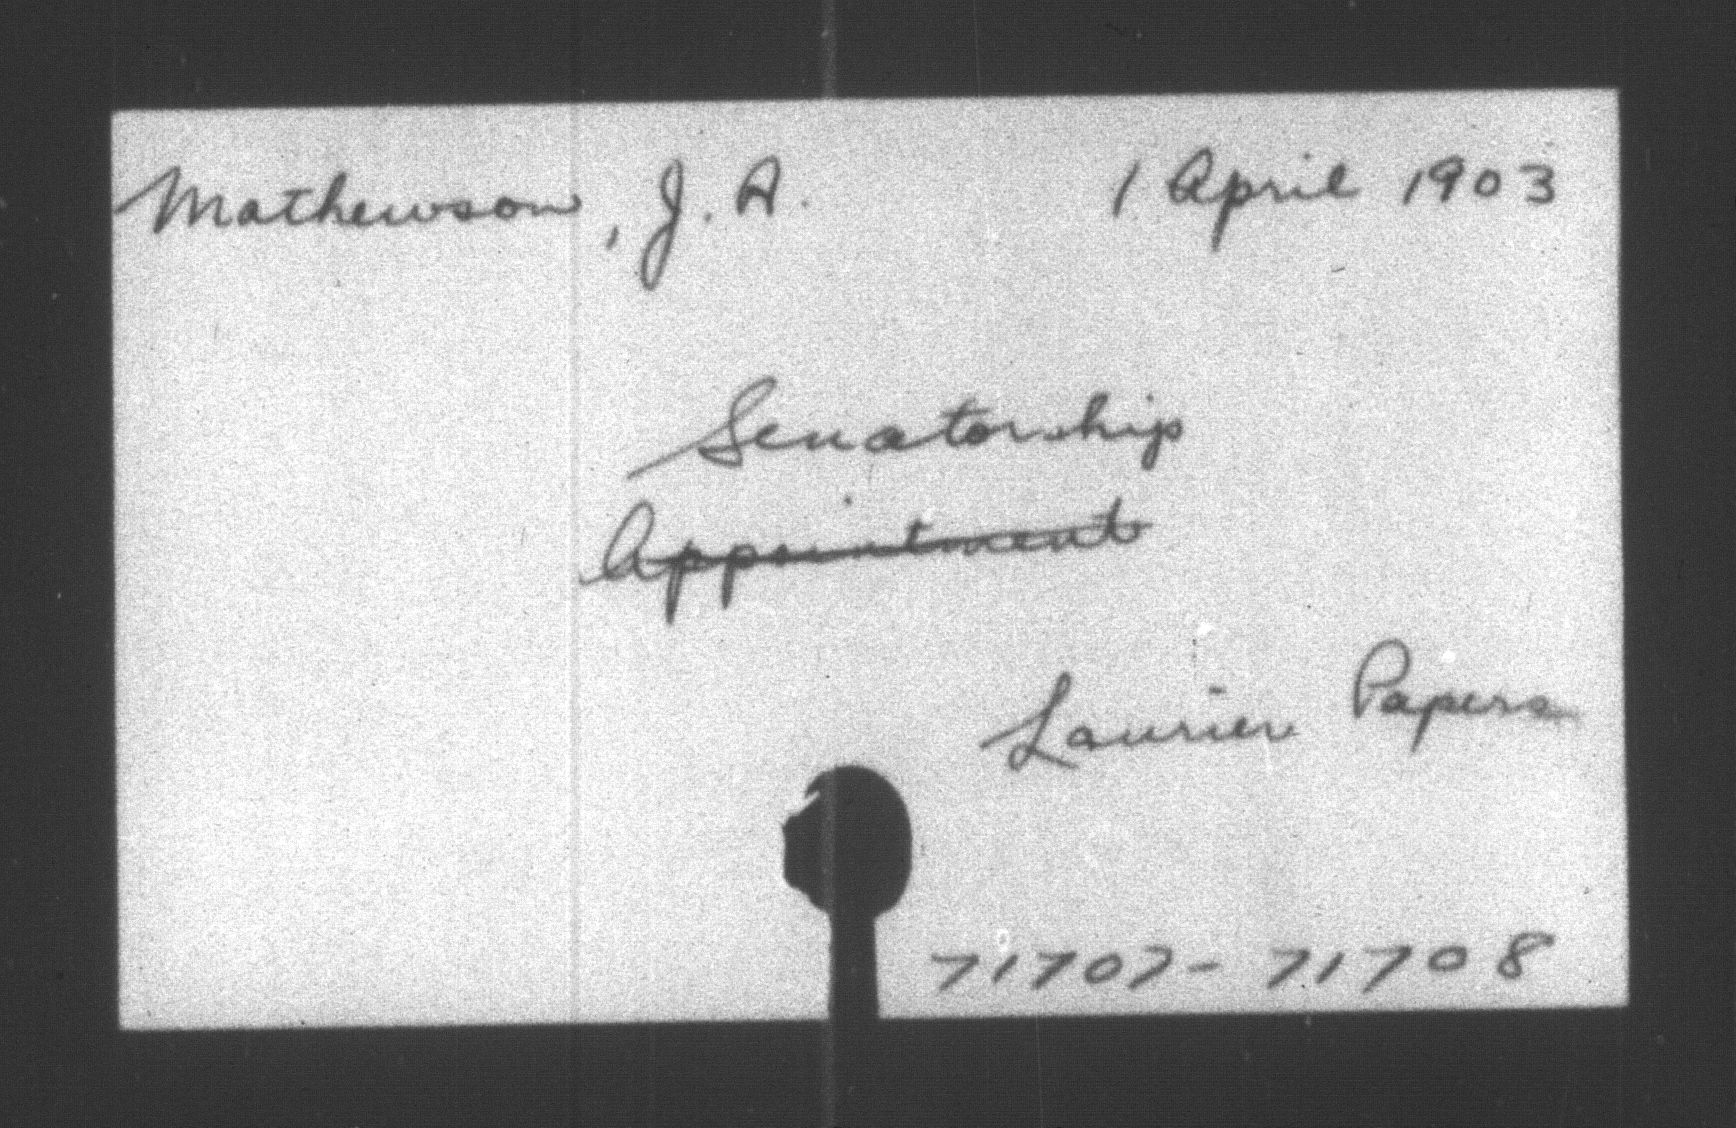 Mathewson, J. A. 1 April 1903
Senatorship
Appointment
Laurier Papers
71707-71708